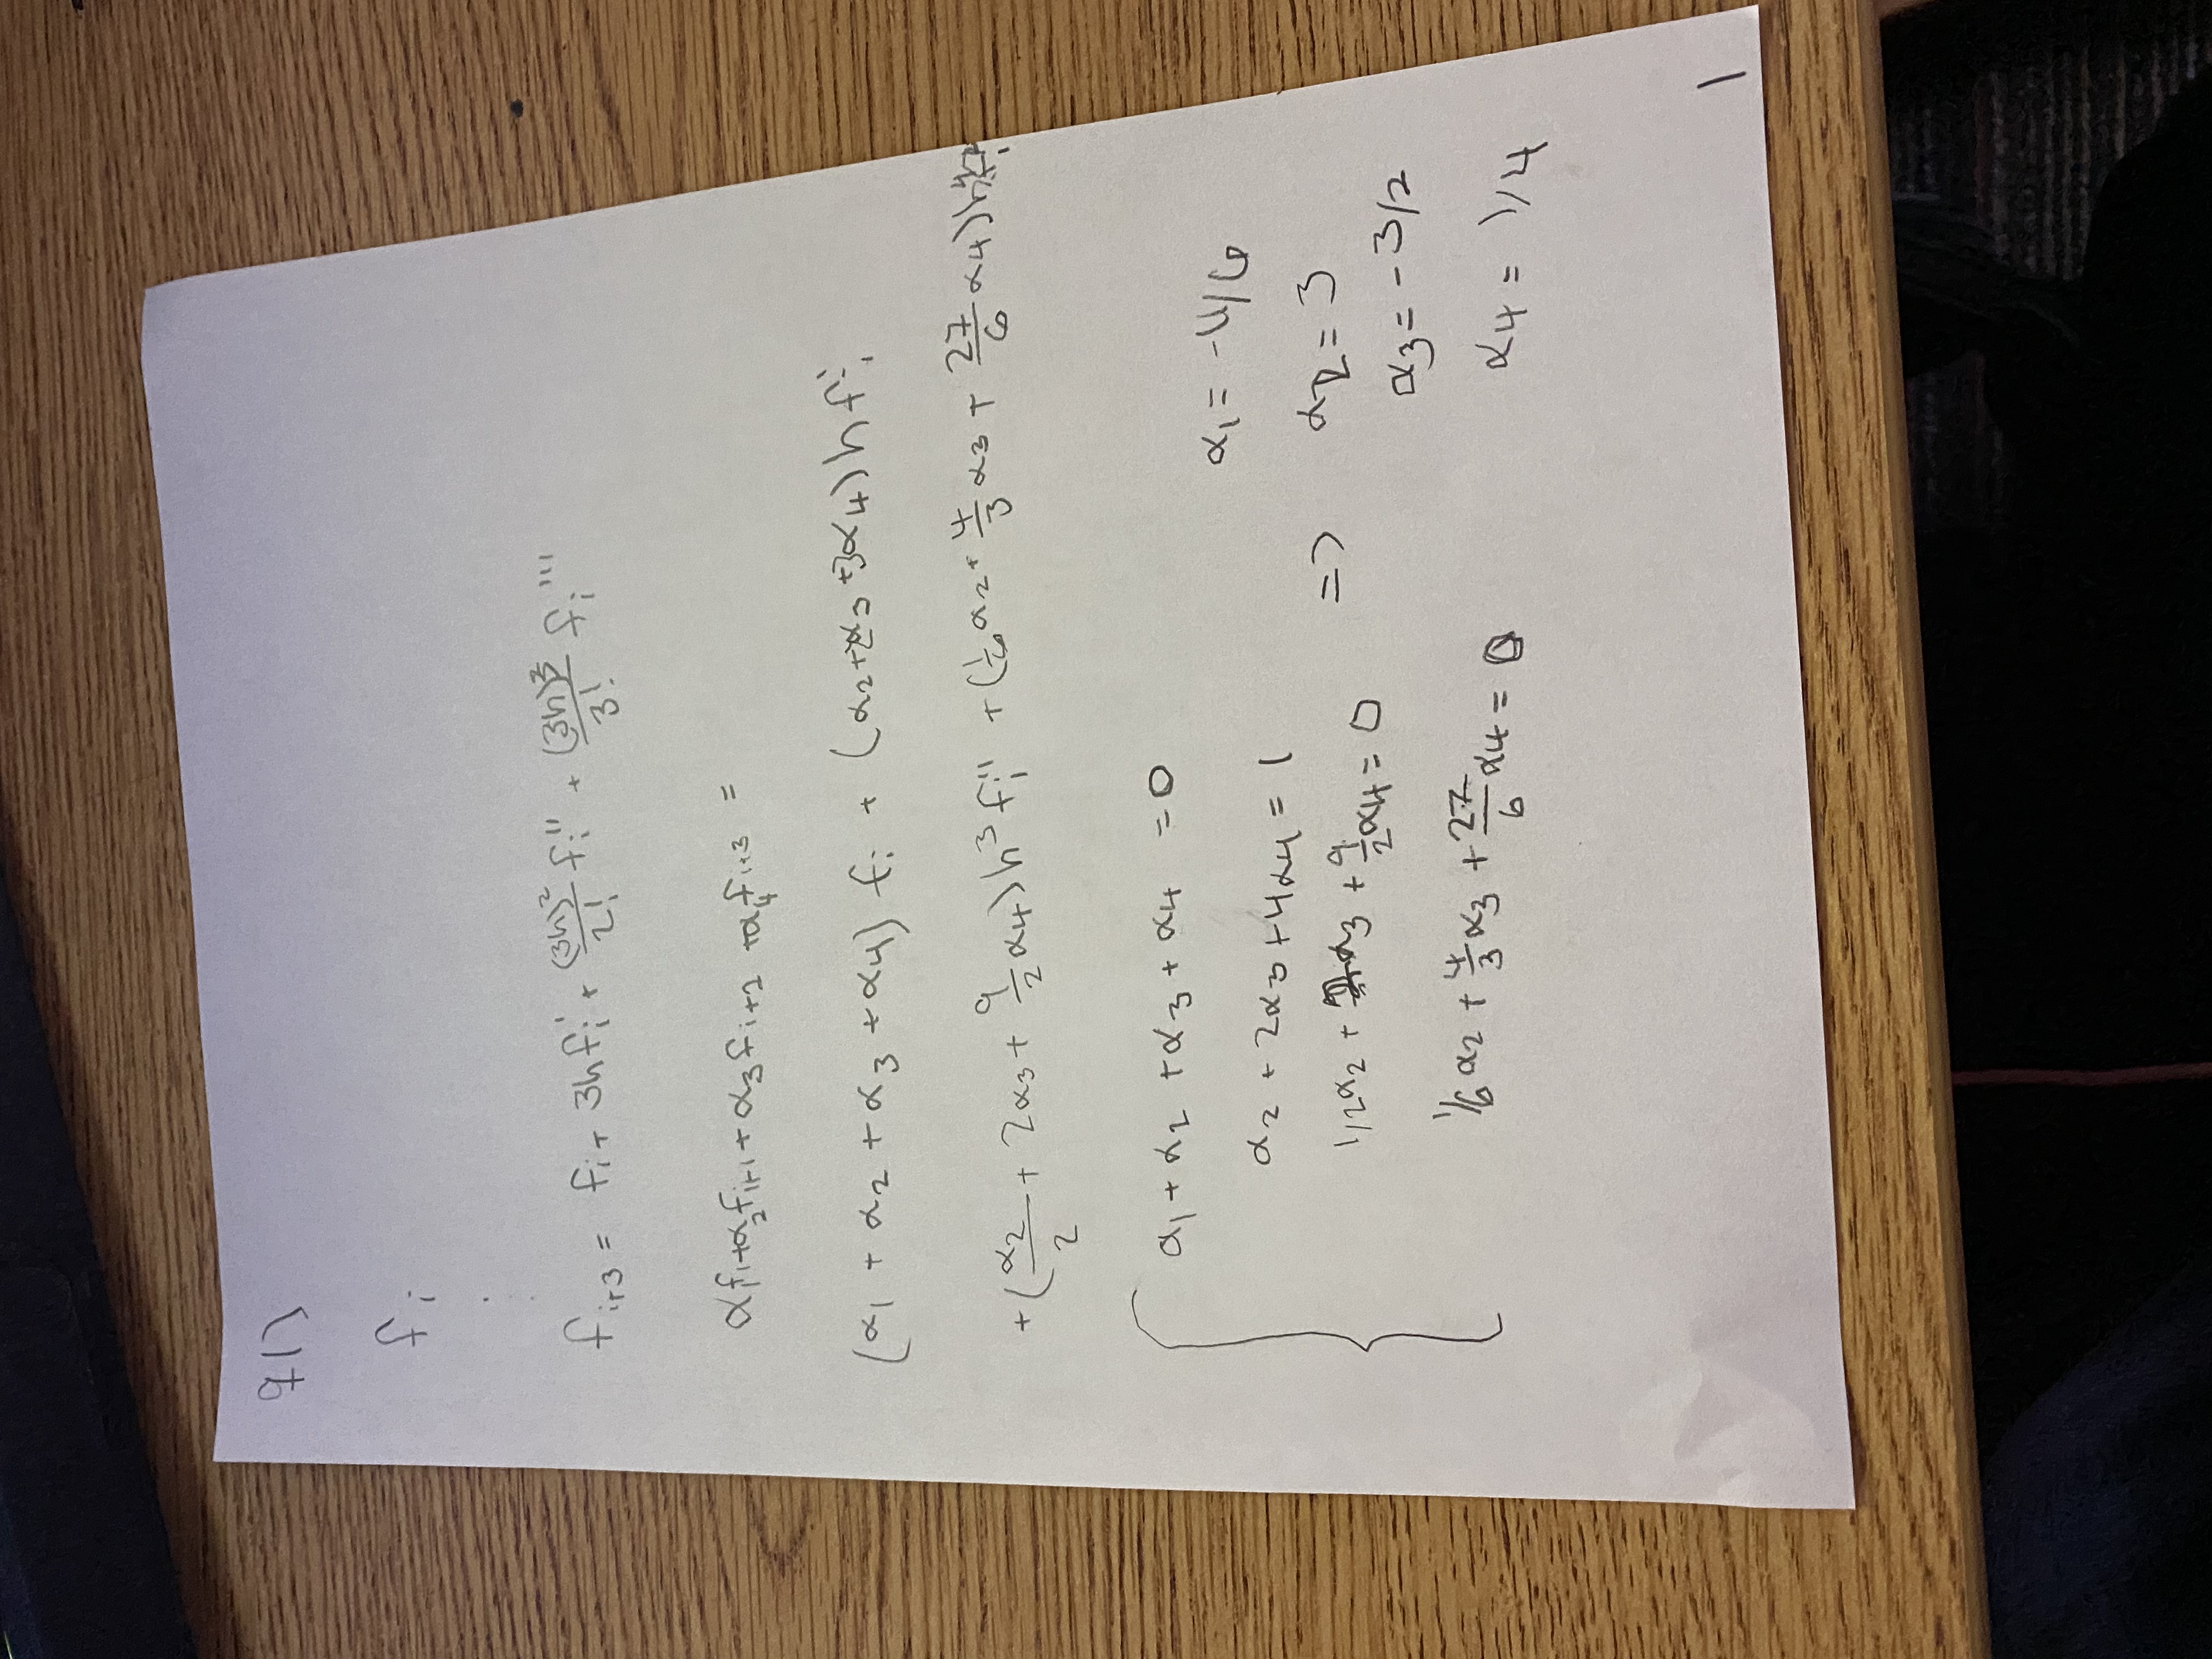 q1)
f_i
.
.
f_{i+3} = f_i + 3hf_i' + (3h)^2/2! f_i'' + (3h)^3/3! f_i'''
α_1f_i+α_2f_{i+1}+α_3f_{i+2} +α_4f_{i+3} =
(α_1 + α_2 + α_3 + α_4) f_i + (α_2+2α_3+3α_4)hf_i'
+(α_2/2 + 2α_3+ 9/2 α_4)h^3f_i'' +(1/6 α_2+ 4/3 α_3 + 27/6 α_4)h
α_1 + α_2 + α_3 + α_4 = 0
α_2 + 2α_3 + 4α_4 = 1
1/2α_2 + 2α_3 + 9/2 α_4 = 0
1/6 α_2 + 4/3 α_3 + 27/6 α_4 = 0
=>
α_1 = -11/6
α_2 = 3
α_3 = -3/2
α_4 = 1/4
1